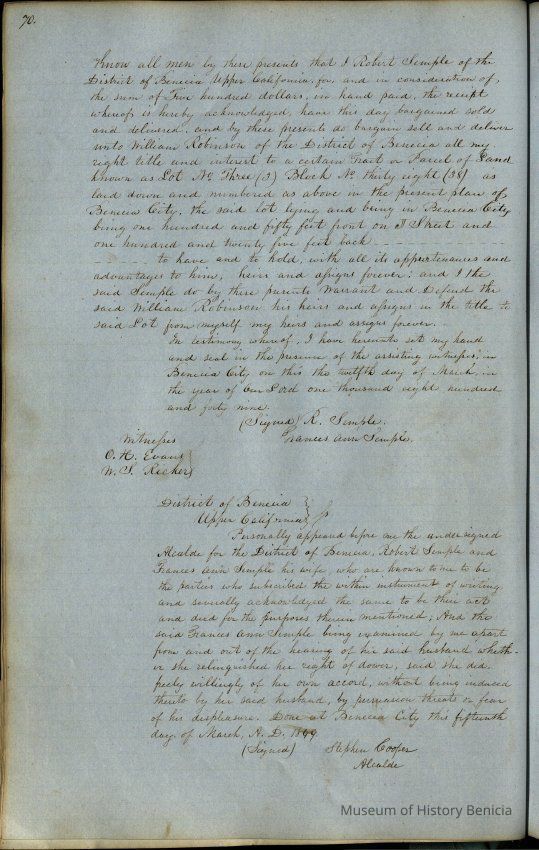 70.
Know all men by these presents that I Robert Semple of the
District of Benecia Upper California, for, and in consideration of,
the sum of Five hundred dollars, in hand paid, the receipt
whereof is hereby acknowledged, have this day bargained sold
and delivered, and by these presents do bargain sell and deliver
unto William Robinson of the District of Benecia all my
right title and interest to a certain Tract or Parcel of Land
known as Lot No. Three (3) Block No. thirty eight (38) as
laid down and numbered as above in the present plan of
Benecia City, the said lot lying and being in Benecia City
being one hundred and fifty feet front on Street and
one hundred and twenty five feet back
to have and to hold, with all its appertenances and
advantages to him, heirs and assigns forever: and I the
said Semple do by these presents Warrant and Defend the
said William Robinson his heirs and assigns in the title to
said Lot from myself my heirs and assigns forever.
In testimony whereof, I have hereunto set my hand
and seal in the presence of the assisting witnesses, in
Benecia City on this the twelfth day of March, in
the year of Our Lord one thousand eight hundred
and forty nine.
(Signed) R. Semple.
Frances Ann Semple.
Witnesses
O. H. Evans
W. S.
District of Benecia
Upper California
Personally appeared before me the undersigned
Alcalde for the District of Benecia, Robert Semple and
Frances Ann Semple his wife, who are known to me to be
the parties who subscribed the within instrument of writing
and severally acknowledged the same to be their act
and deed for the purposes therein mentioned; And the
said Frances Ann Semple being examined by me apart
from and out of the hearing of her said husband wheth-
er she relinquished her right of dower, said she did,
freely willingly of her own accord, without being induced
thereto by her said husband, by persuasion threats or fear
of his displeasure. Done at Benecia City this fifteenth
day of March, A. D. 1849.
(Signed) Stephen Cooper
Alcalde
Museum of History Benicia